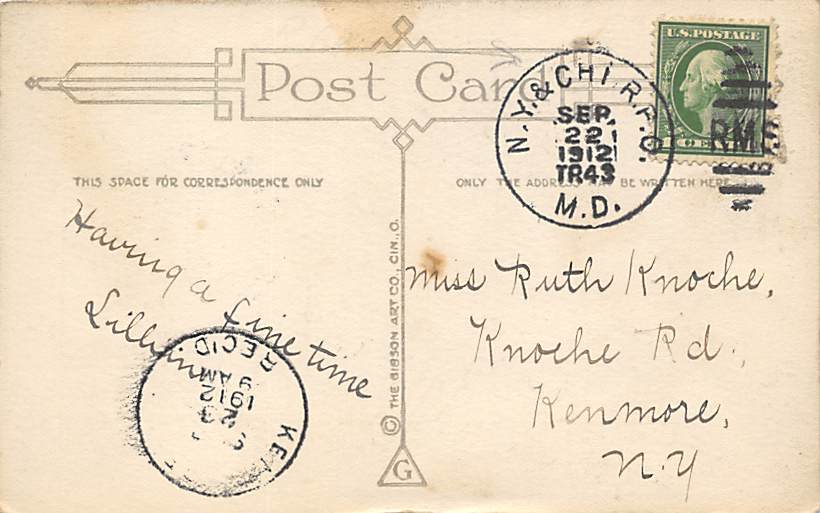 Post Card
U.S. POSTAGE
N.Y. & CHI. R.P.O.
SEP.
22
1912
TR43
M.D.
RMS
THIS SPACE FOR CORRESPONDENCE ONLY
ONLY THE ADDRESS MAY BE WRITTEN HERE
Having a fine time
Lillian
Miss Ruth Knoche,
Knoche Rd.,
Kenmore,
N.Y
REC'D.
9 AM
1912
23
© THE GIBSON ART CO., CIN., O.
G